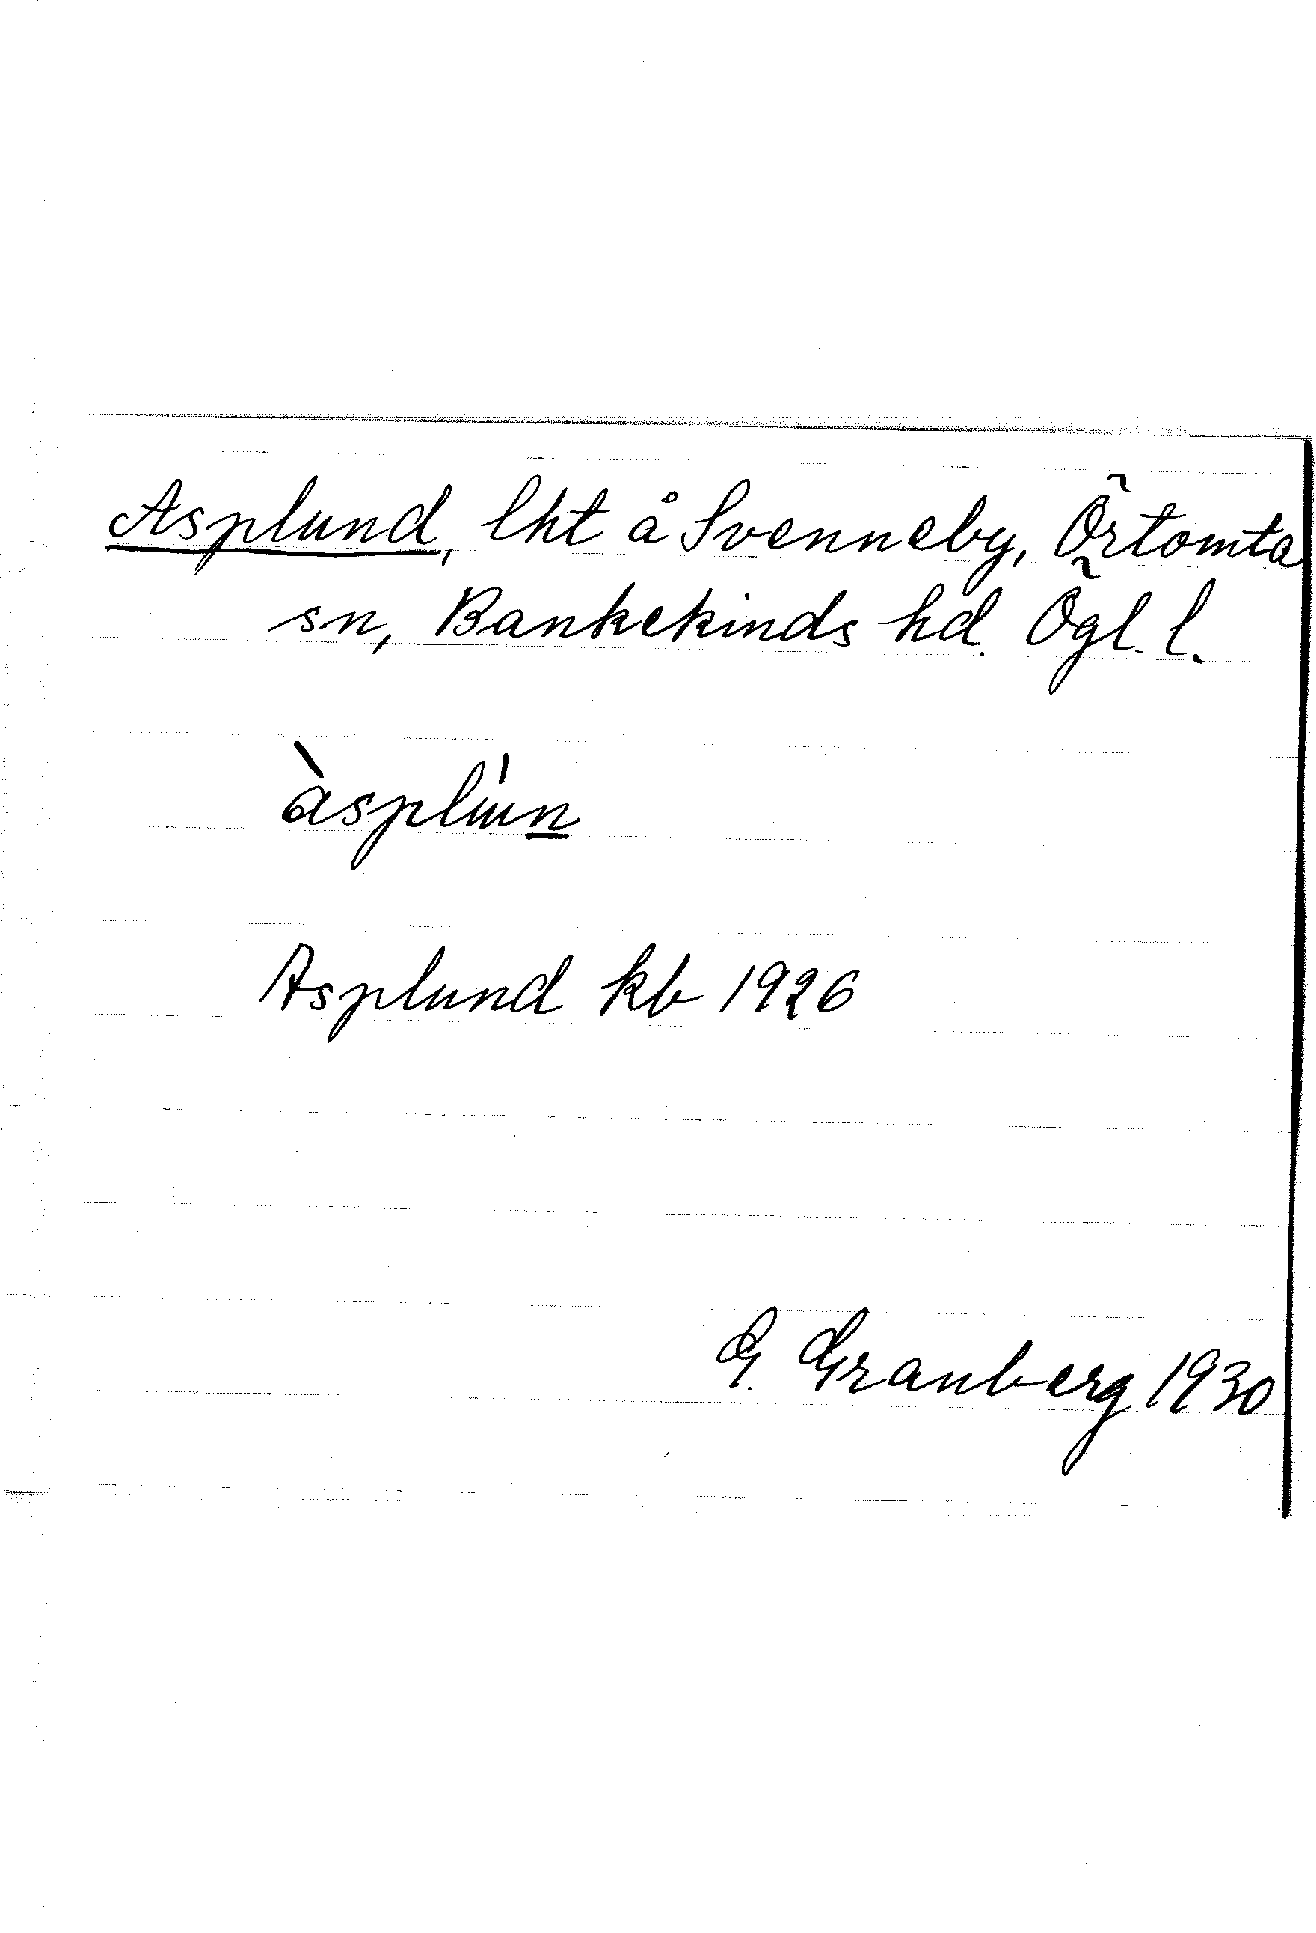 Asplund, lht å Svenneby, Örtomta
sn, Bankekinds hd. Ögl. l.
àsplún
Asplund kb 1926
G. Granberg 1930